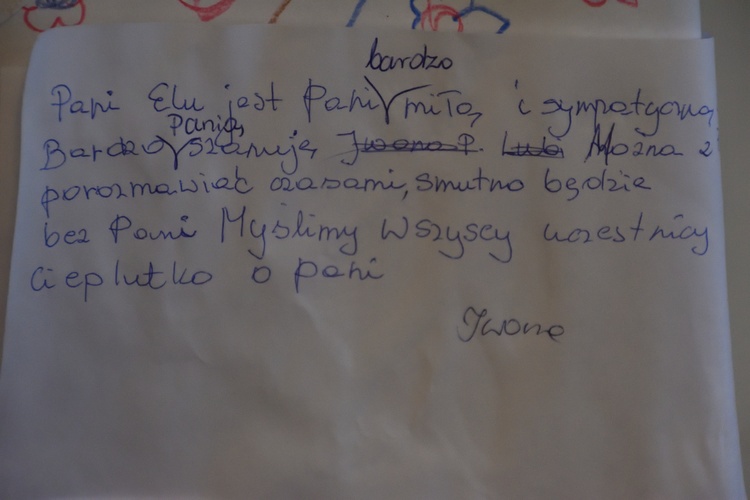 bardzo
Pani Elu jest Pani miłą i sympatyczną
Panią
Bardzo szanuję Iwona P. Lubi Można z
porozmawiać czasami, smutno będzie
bez Pani Myślimy wszyscy uczestnicy
cieplutko o pani
Iwona